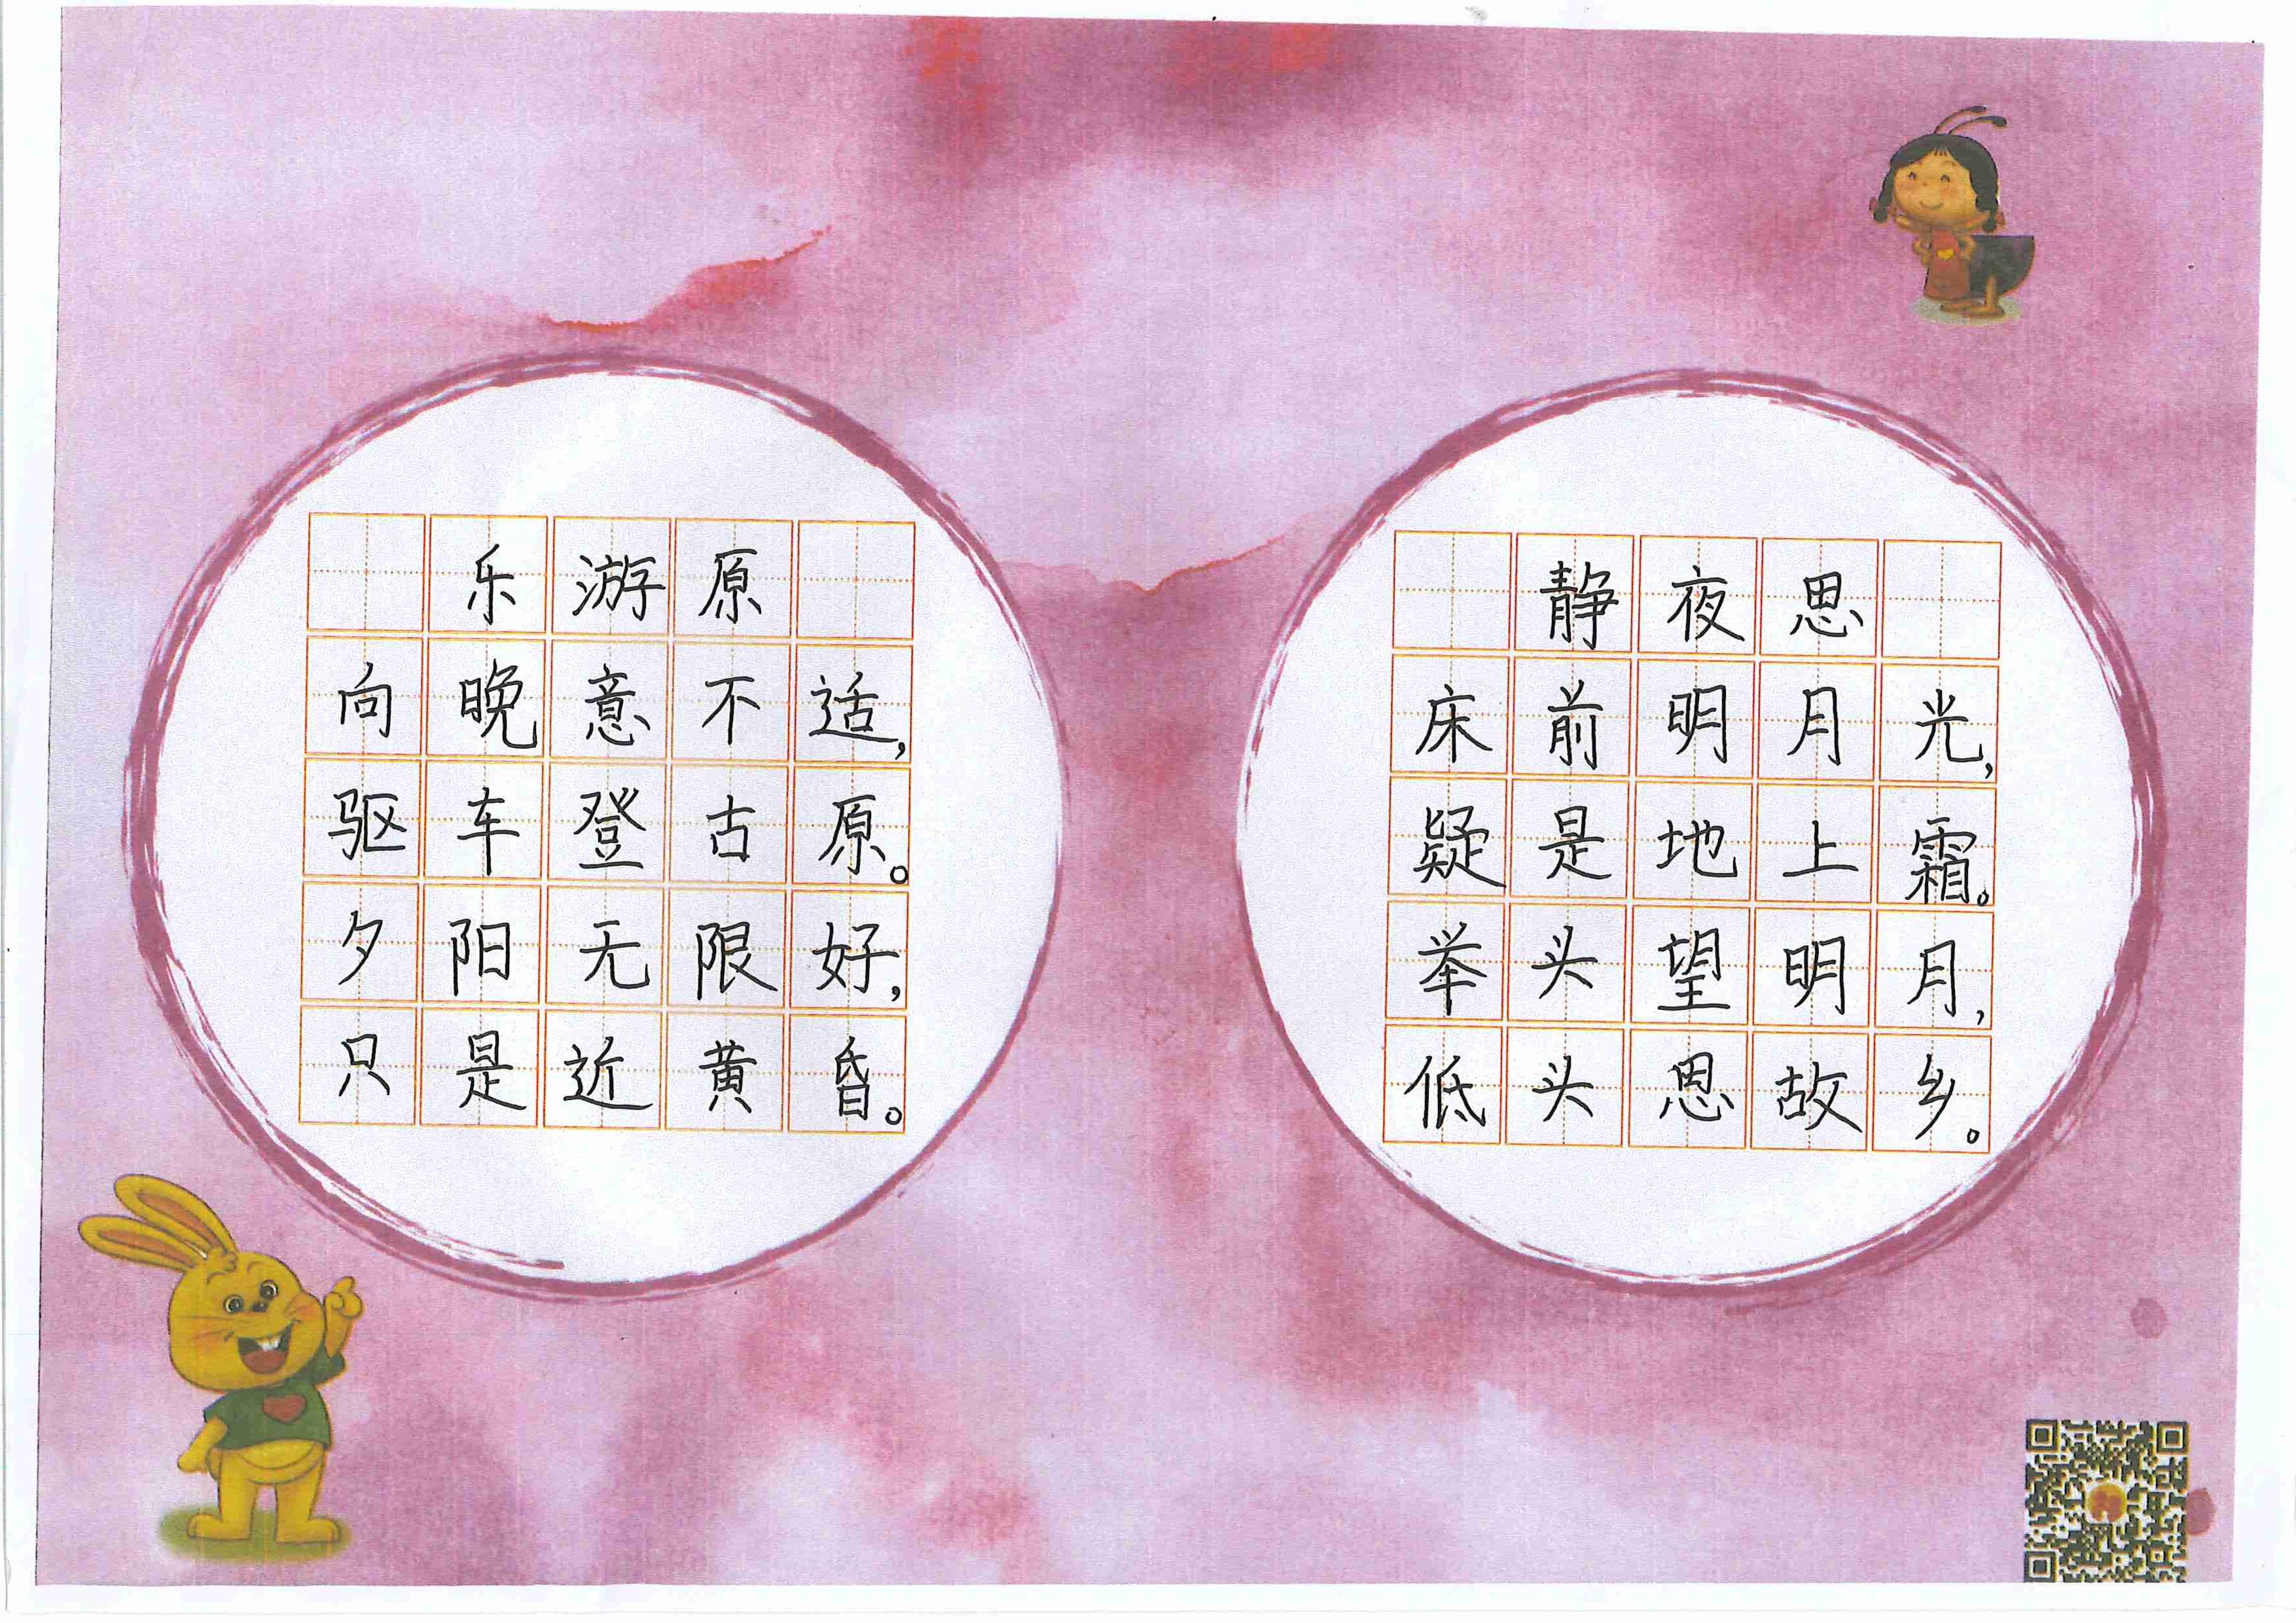 乐游原
向晚意不适,
驱车登古原。
夕阳无限好,
只是近黄昏。
静夜思
床前明月光,
疑是地上霜。
举头望明月,
低头思故乡。